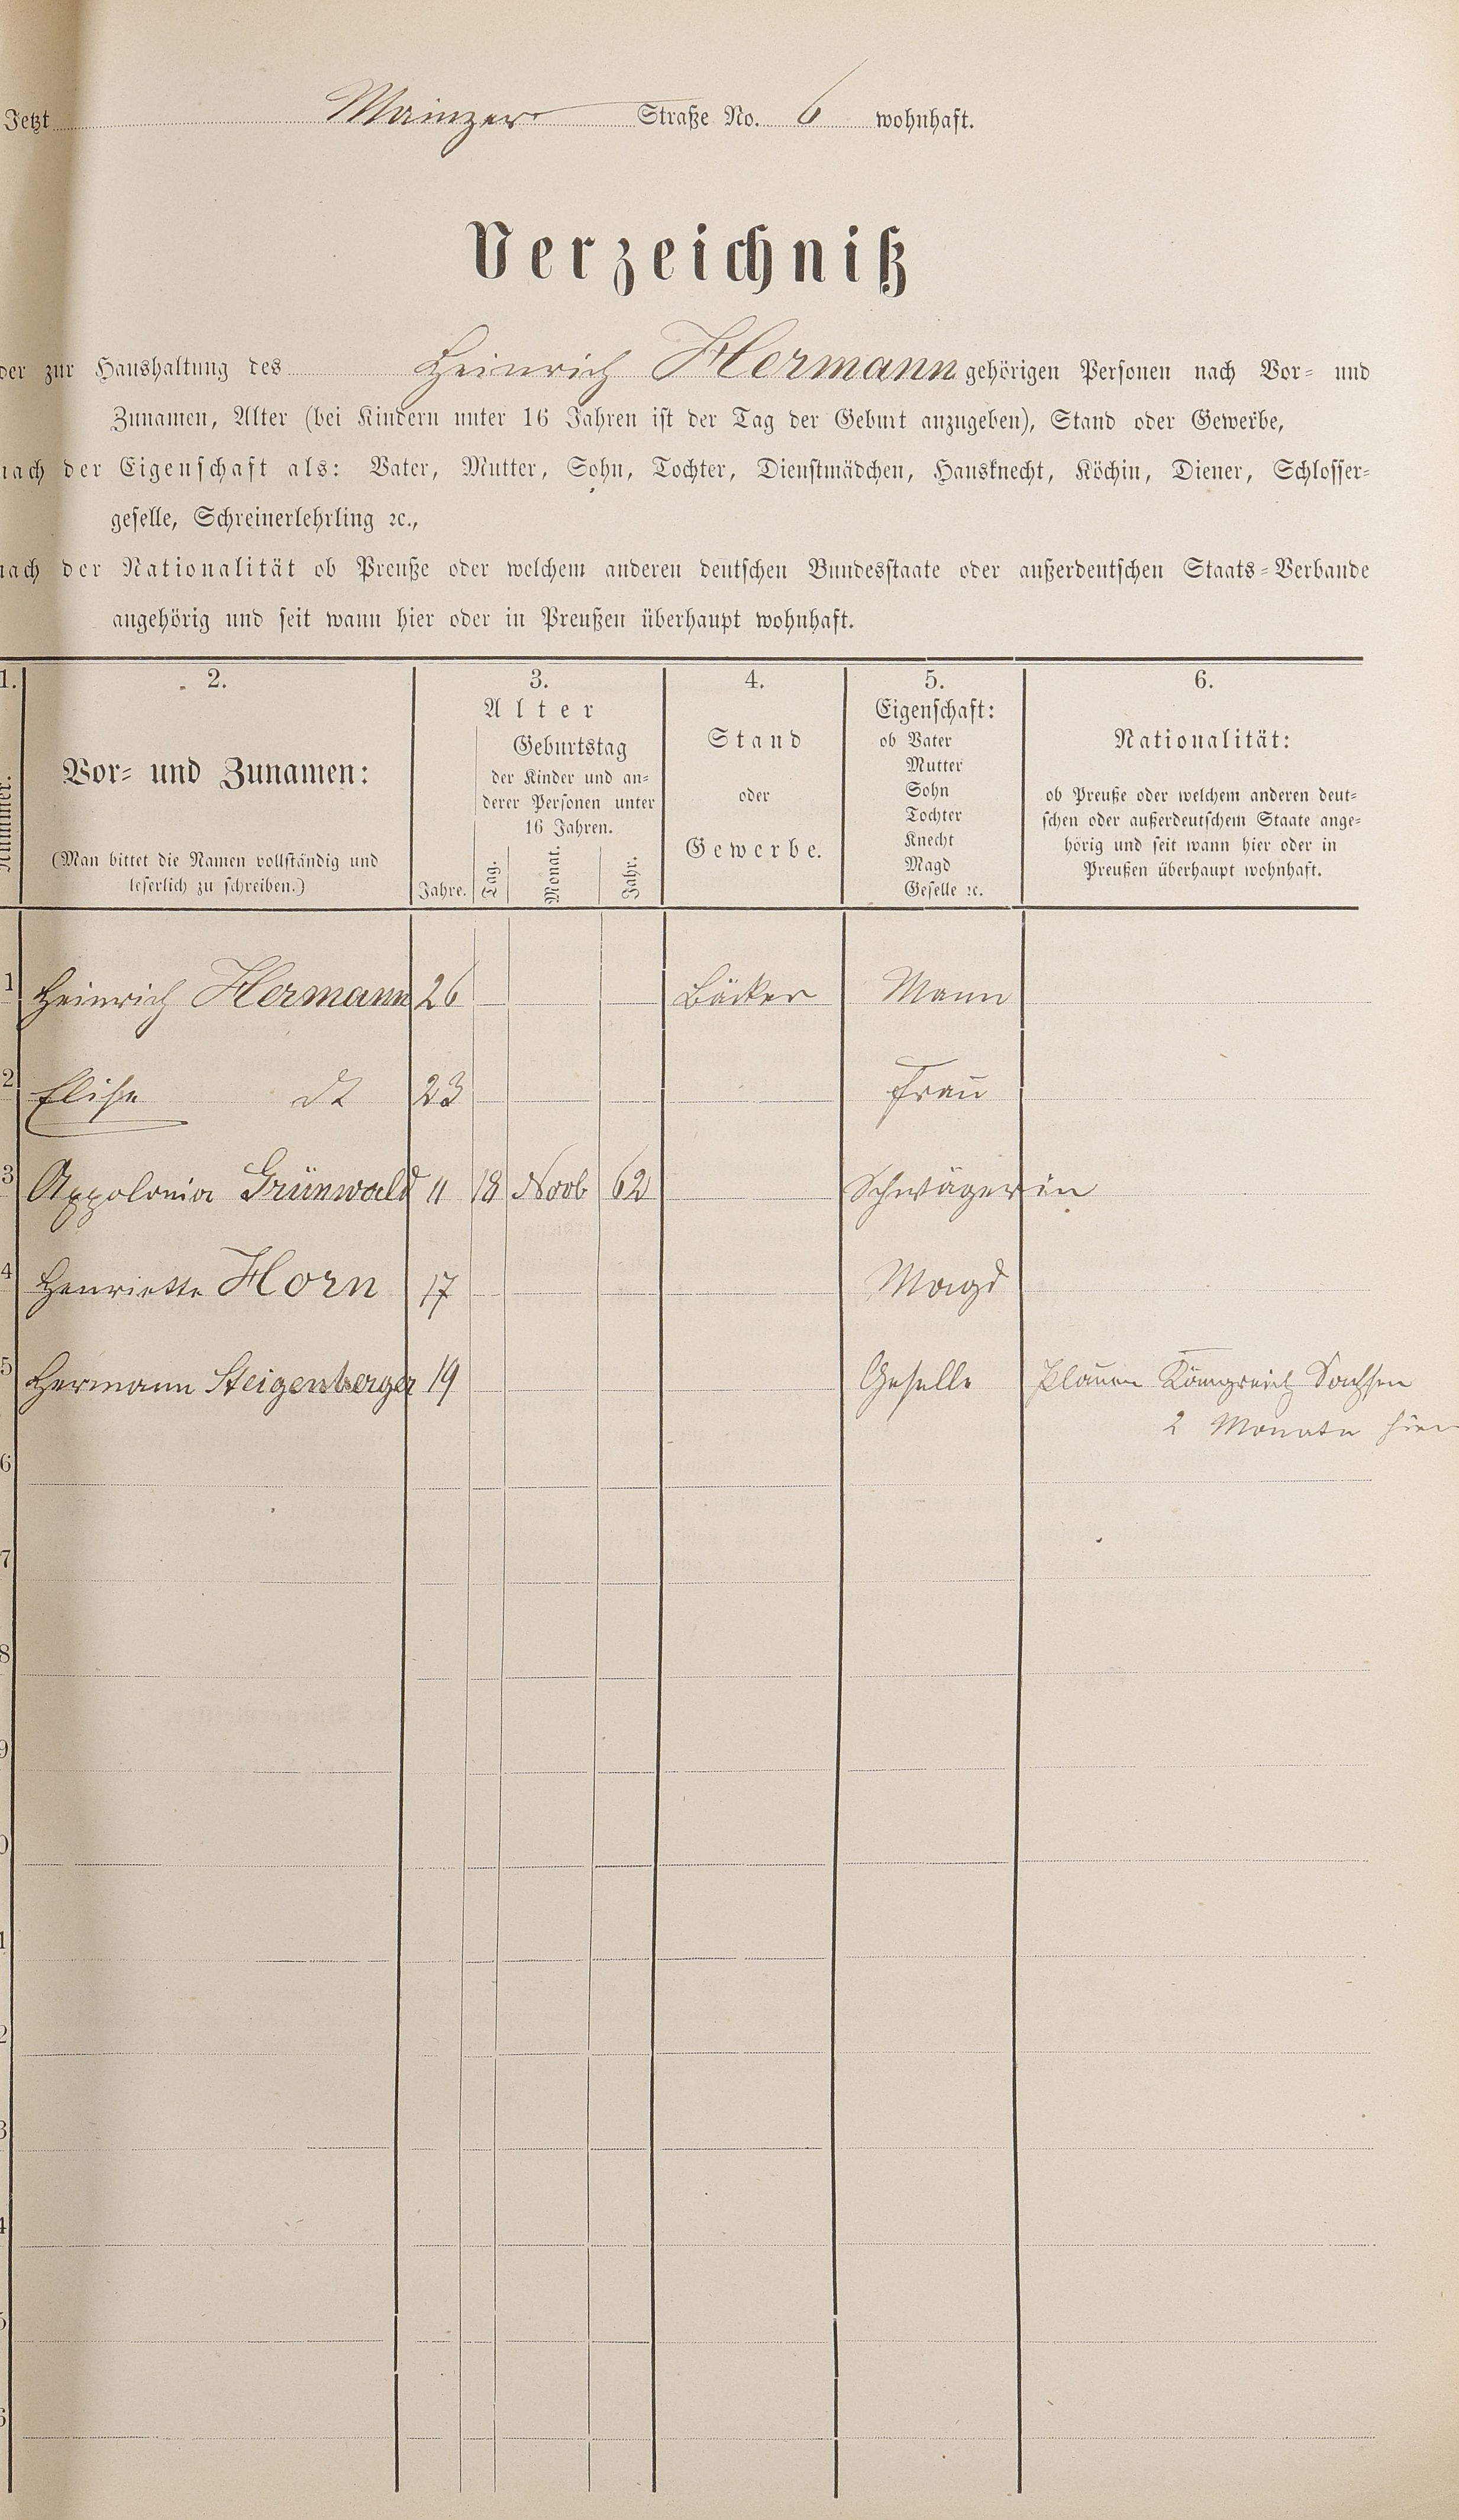 Jetzt Mainzer Straße No. 6 wohnhaft.
Verzeichniß
der zur Haushaltung des Heinrich Hermann gehörigen Personen nach Vor- und
Zunamen, Alter (bei Kindern unter 16 Jahren ist der Tag der Geburt anzugeben), Stand oder Gewerbe,
nach der Eigenschaft als: Vater, Mutter, Sohn, Tochter, Dienstmädchen, Hausknecht, Köchin, Diener, Schlosser-
geselle, Schreinerlehrling ꝛc.,
nach der Nationalität ob Preuße oder welchem anderen deutschen Bundesstaate oder außerdeutschen Staats-Verbande
angehörig und seit wann hier oder in Preußen überhaupt wohnhaft.
1.
Nummer.
2.
Vor- und Zunamen:
(Man bittet die Namen vollständig und
leserlich zu schreiben.)
3.
Alter
Jahre.
Geburtstag
der Kinder und an-
derer Personen unter
16 Jahren.
Tag. Monat. Jahr.
4.
Stand
oder
Gewerbe.
5.
Eigenschaft:
ob Vater
Mutter
Sohn
Tochter
Knecht
Magd
Geselle ꝛc.
6.
Nationalität:
ob Preuße oder welchem anderen deut-
schen oder außerdeutschem Staate ange-
hörig und seit wann hier oder in
Preußen überhaupt wohnhaft.
1 Heinrich Hermann 26 Bäcker Mann
2 Elise dt 23 Frau
3 Appolonia Grünwald 11 18 Novb 62 Schwägerin
4 Henriette Horn 17 Magd
5 Hermann Steigenberger 19 Geselle Plauen Königreich Sachsen
2 Monate hier
6
7
8
9
0
1
2
3
4
5
6